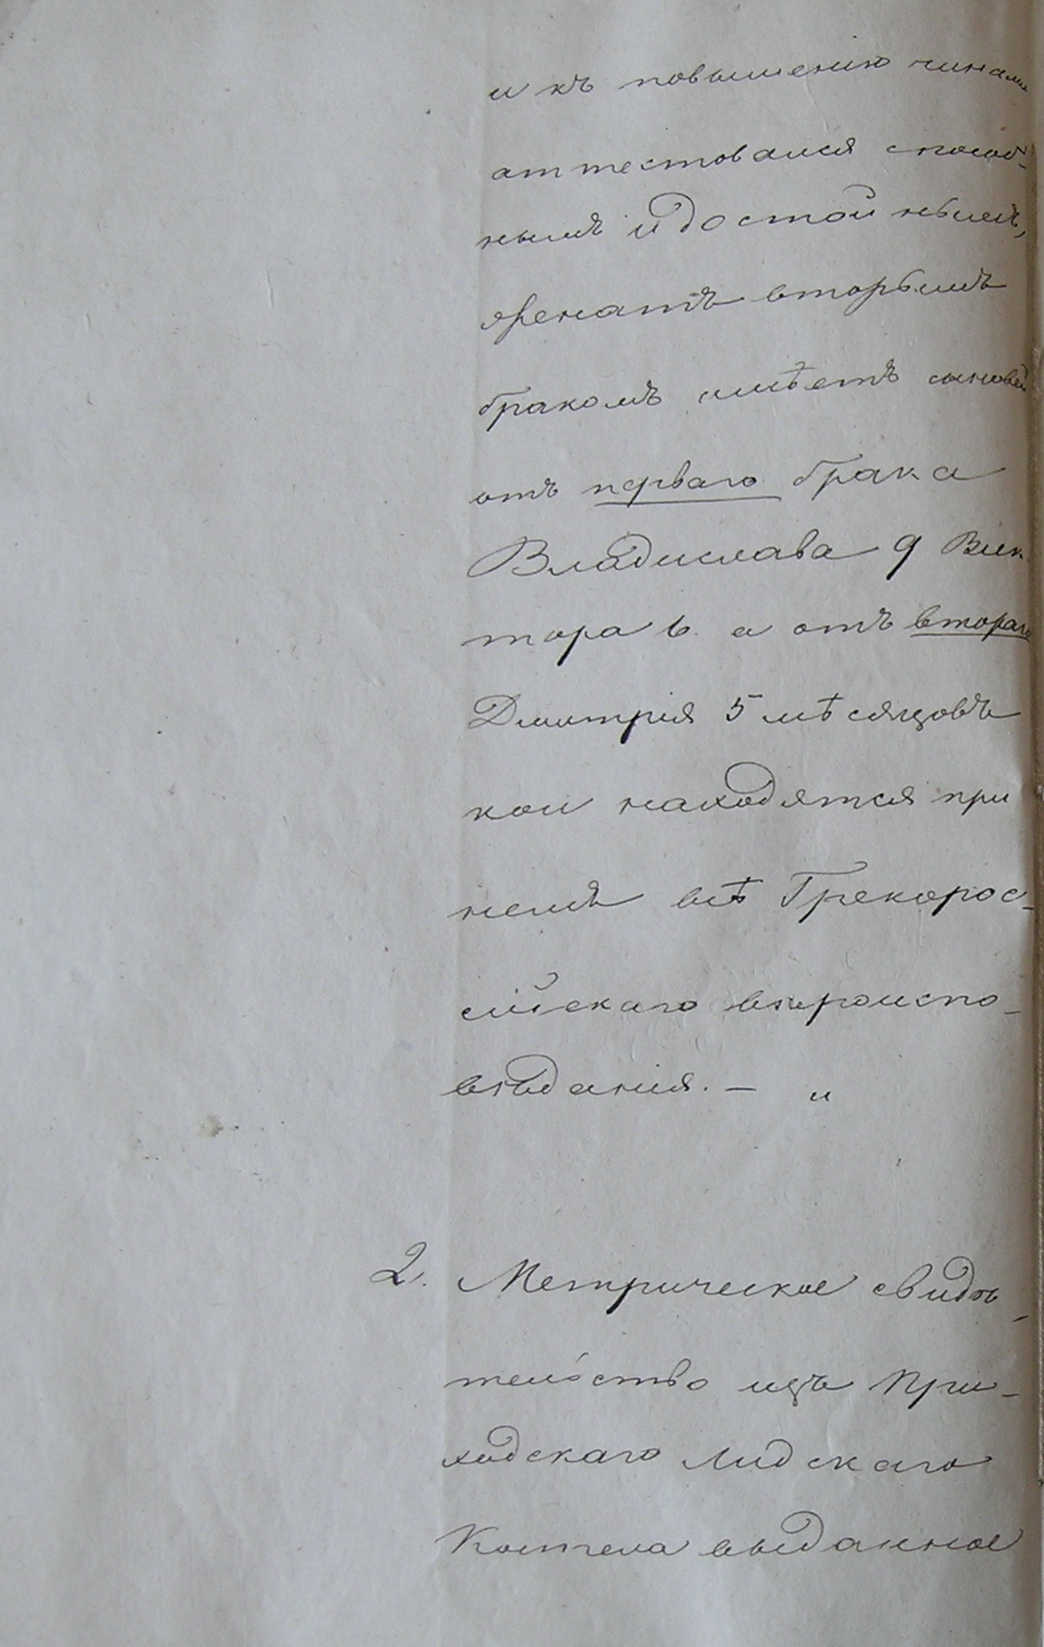 и къ повышенію чинами
аттестовался способ-
нымъ и достойнымъ,
женатъ вторымъ
бракомъ имѣетъ сыновей
отъ перваго брака
Владислава 9 Вик
тора 6. а отъ втораго
Дмитрія 5 мѣсяцовъ
кои находятся при
немъ всѣ Грекорос-
сійскаго вѣроиспо-
вѣданія. — „
2. Метрическое свидѣ-
тельство изъ При-
ходскаго Лидскаго
Костела выданное